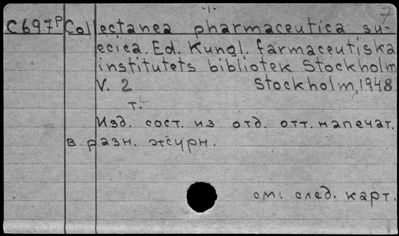 7
C697P Collectanea pharmaceutica su-
ecica. Ed. Kungl. farmaceutiska
institutets bibliotek Stockholm
V. 2 Stockholm, 1948
т.
Изд. сост. из отд. отт. напечат.
в разн. журн.
см. след. карт.